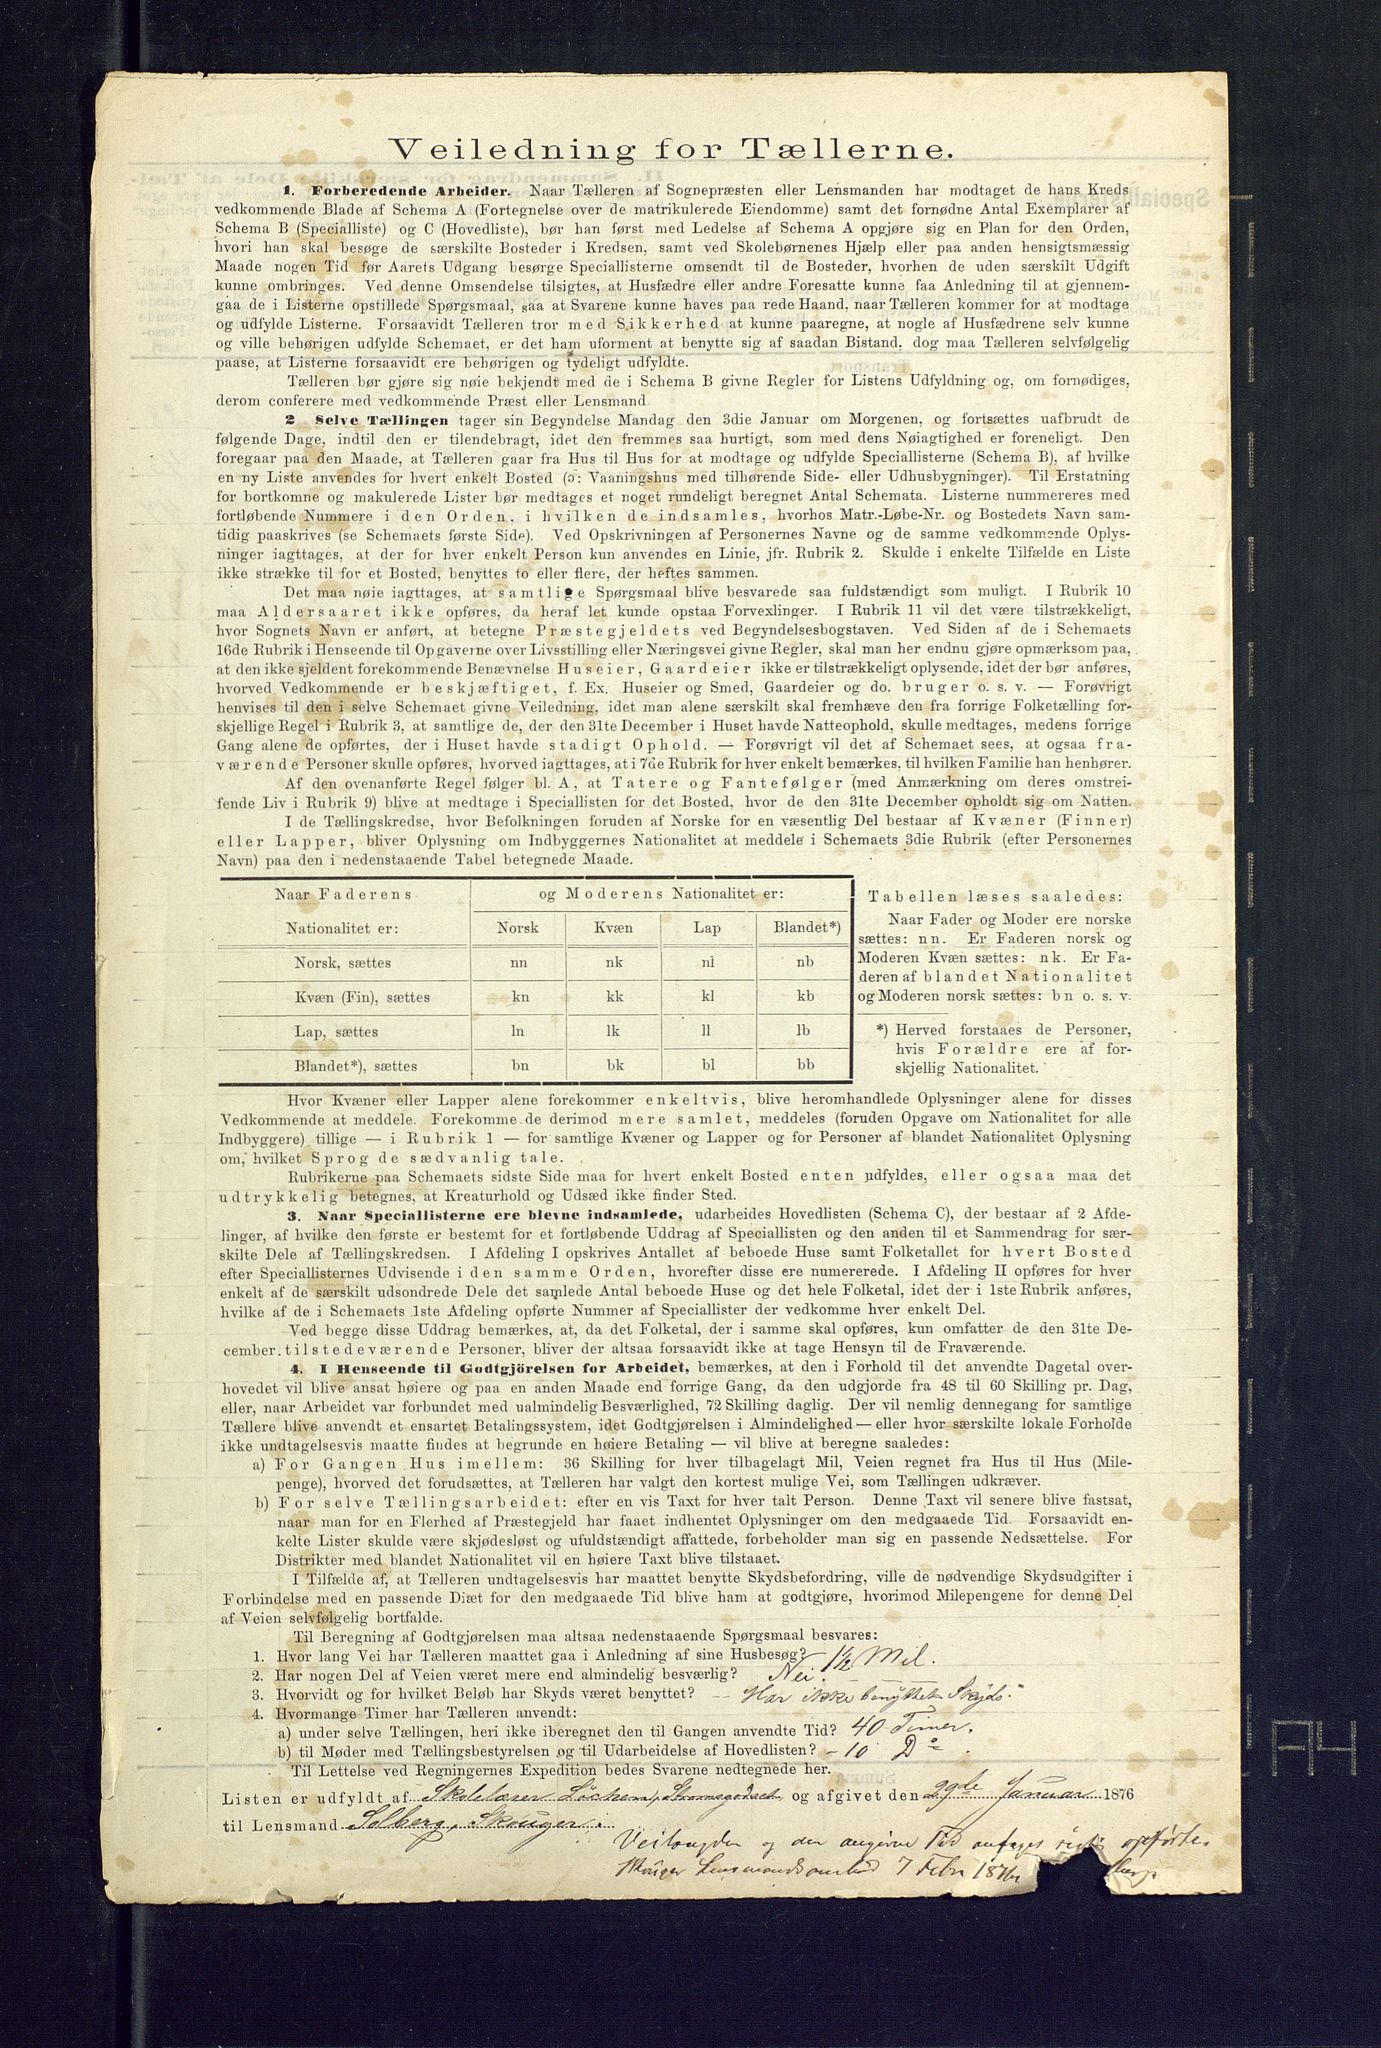 Veiledning for Tællerne.
1. Forberedende Arbeider. Naar Tælleren af Sognepræsten eller Lensmanden har modtaget de hans Kreds
vedkommende Blade af Schema A (Fortegnelse over de matrikulerede Eiendomme) samt det fornødne Antal Exemplarer af
Schema B (Specialliste) og C (Hovedliste), bør han først med Ledelse af Schema A opgjøre sig en Plan for den Orden,
hvori han skal besøge de særskilte Bosteder i Kredsen, samt ved Skolebørnenes Hjælp eller paa anden hensigtsmæssig
Maade nogen Tid før Aarets Udgang besørge Speciallisterne omsendt til de Bosteder, hvorhen de uden særskilt Udgift
kunne ombringes. Ved denne Omsendelse tilsigtes, at Husfædre eller andre Foresatte kunne faa Anledning til at gjennem-
gaa de i Listerne opstillede Spørgsmaal, saa at Svarene kunne haves paa rede Haand, naar Tælleren kommer for at modtage
og udfylde Listerne. Forsaavidt Tælleren tror med Sikkerhed at kunne paaregne, at nogle af Husfædrene selv kunne
og ville behørigen udfylde Schemaet, er det ham uforment at benytte sig af saadan Bistand, dog maa Tælleren selvfølgelig
paase, at Listerne forsaavidt ere behørigen og tydeligt udfyldte.
Tælleren bør gjøre sig nøie bekjendt med de i Schema B givne Regler for Listens Udfyldning og, om fornødiges,
derom conferere med vedkommende Præst eller Lensmand.
2 Selve Tællingen tager sin Begyndelse Mandag den 3die Januar om Morgenen, og fortsættes uafbrudt de
følgende Dage, indtil den er tilendebragt, idet den fremmes saa hurtigt, som med dens Nøiagtighed er foreneligt. Den
foregaar paa den Maade, at Tælleren gaar fra Hus til Hus for at modtage og udfylde Speciallisterne (Schema B), af hvilke
en ny Liste anvendes for hvert enkelt Bosted (ɔ: Vaaningshus med tilhørende Side- eller Udhusbygninger). Til Erstatning
for bortkomne og makulerede Lister bør medtages et noget rundeligt beregnet Antal Schemata. Listerne nummereres med
fortløbende Nummere i den Orden, i hvilken de indsamles, hvorhos Matr.-Løbe-Nr. og Bostedets Navn sam-
tidig paaskrives (se Schemaets første Side). Ved Opskrivningen af Personernes Navne og de samme vedkommende Oplys-
ninger iagttages, at der for hver enkelt Person kun anvendes en Linie, jfr. Rubrik 2. Skulde i enkelte Tilfælde en Liste
ikke strække til for et Bosted, benyttes to eller flere, der heftes sammen.
Det maa nøie iagttages, at samtlige Spørgsmaal blive besvarede saa fuldstændigt som muligt. I Rubrik 10
maa Aldersaaret ikke opføres, da heraf let kunde opstaa Forvexlinger. I Rubrik 11 vil det være tilstrækkeligt,
hvor Sognets Navn er anført, at betegne Præstegjeldets ved Begyndelsesbogstaven. Ved Siden af de i Schemaets
16de Rubrik i Henseende til Opgaverne over Livsstilling eller Næringsvei givne Regler, skal man her endnu gjøre opmærksom paa,
at den ikke sjeldent forekommende Benævnelse Huseier, Gaardeier ikke er tilstrækkeligt oplysende, idet der bør anføres,
hvorved Vedkommende er beskjæftiget, f. Ex. Huseier og Smed, Gaardeier og do. bruger o. s. v. — Forøvrigt
henvises til den i selve Schemaet givne Veiledning, idet man alene særskilt skal fremhæve den fra forrige Folketælling for-
skjellige Regel i Rubrik 3, at samtlige de, der den 31te December i Huset havde Natteophold, skulle medtages, medens forrige
Gang alene de opførtes, der i Huset havde stadigt Ophold. — Forøvrigt vil det af Schemaet sees, at ogsaa fra-
værende Personer skulle opføres, hvorved iagttages, at i 7de Rubrik for hver enkelt bemærkes, til hvilken Familie han henhører.
Af den ovenanførte Regel følger bl. A, at Tatere og Fantefølger (med Anmærkning om deres omstrei-
fende Liv i Rubrik 9) blive at medtage i Speciallisten for det Bosted, hvor de den 31te December opholdt sig om Natten.
I de Tællingskredse, hvor Befolkningen foruden af Norske for en væsentlig Del bestaar af Kvæner (Finner)
eller Lapper, bliver Oplysning om Indbyggernes Nationalitet at meddele i Schemaets 3die Rubrik (efter Personernes
Navn) paa den i nedenstaaende Tabel betegnede Maade.
Naar Faderens Nationalitet er: og Moderens Nationalitet er:
Norsk Kvæn Lap Blandet*)
Norsk, sættes nn nk nl nb
Kvæn (Fin), sættes kn kk kl kb
Lap, sættes ln lk ll lb
Blandet*), sættes bn bk bl bb
Tabellen læses saaledes:
Naar Fader og Moder ere norske
sættes: nn. Er Faderen norsk og
Moderen Kvæn sættes: nk. Er Fa-
deren af blandet Nationalitet
og Moderen norsk sættes: bn o. s. v.
*) Herved forstaaes de Personer,
hvis Forældre ere af for-
skjellig Nationalitet.
Hvor Kvæner eller Lapper alene forekommer enkeltvis, blive heromhandlede Oplysninger alene for disses
Vedkommende at meddele. Forekomme de derimod mere samlet, meddeles (foruden Opgave om Nationalitet for alle
Indbyggere) tillige — i Rubrik 1 — for samtlige Kvæner og Lapper og for Personer af blandet Nationalitet Oplysning
om, hvilket Sprog de sædvanlig tale.
Rubrikerne paa Schemaets sidste Side maa for hvert enkelt Bosted enten udfyldes, eller ogsaa maa det
udtrykkelig betegnes, at Kreaturhold og Udsæd ikke finder Sted.
3. Naar Speciallisterne ere blevne indsamlede, udarbeides Hovedlisten (Schema C), der bestaar af 2 Afde-
linger, af hvilke den første er bestemt for et fortløbende Uddrag af Speciallisten og den anden til et Sammendrag for sær-
skilte Dele af Tællingskredsen. I Afdeling I opskrives Antallet af beboede Huse samt Folketallet for hvert Bosted
efter Speciallisternes Udvisende i den samme Orden, hvorefter disse ere numererede. I Afdeling II opføres for hver
enkelt af de særskilt udsondrede Dele det samlede Antal beboede Huse og det hele Folketal, idet der i 1ste Rubrik anføres,
hvilke af de i Schemaets 1ste Afdeling opførte Nummer af Speciallister der vedkomme hver enkelt Del.
Ved begge disse Uddrag bemærkes, at, da det Folketal, der i samme skal opføres, kun omfatter de den 31te De-
cember tilstedeværende Personer, bliver der altsaa forsaavidt ikke at tage Hensyn til de Fraværende.
4. I Henseende til Godtgjörelsen for Arbeidet, bemærkes, at den i Forhold til det anvendte Dagetal over-
hovedet vil blive ansat høiere og paa en anden Maade end forrige Gang, da den udgjorde fra 48 til 60 Skilling pr. Dag,
eller, naar Arbeidet var forbundet med ualmindelig Besværlighed, 72 Skilling daglig. Der vil nemlig dennegang for samtlige
Tællere blive anvendt et ensartet Betalingssystem, idet Godtgjørelsen i Almindelighed — eller hvor særskilte lokale Forholde
ikke undtagelsesvis maatte findes at begrunde en høiere Betaling — vil blive at beregne saaledes:
a) For Gangen Hus imellem: 36 Skilling for hver tilbagelagt Mil, Veien regnet fra Hus til Hus (Mile-
penge), hvorved det forudsættes, at Tælleren har valgt den kortest mulige Vei, som Tællingen udkræver.
b) For selve Tællingsarbeidet: efter en vis Taxt for hver talt Person. Denne Taxt vil senere blive fastsat,
naar man for en Flerhed af Præstegjeld har faaet indhentet Oplysninger om den medgaaede Tid. Forsaavidt en-
kelte Lister skulde være skjødesløst og ufuldstændigt affattede, forbeholder man sig en passende Nedsættelse. For
Distrikter med blandet Nationalitet vil en høiere Taxt blive tilstaaet.
I Tilfælde af, at Tælleren undtagelsesvis har maattet benytte Skydsbefordring, ville de nødvendige Skydsudgifter i
Forbindelse med en passende Diæt for den medgaaede Tid blive ham at godtgjøre, hvorimod Milepengene for denne Del
af Veien selvfølgelig bortfalde.
Til Beregning af Godtgjørelsen maa altsaa nedenstaaende Spørgsmaal besvares:
1. Hvor lang Vei har Tælleren maattet gaa i Anledning af sine Husbesøg? 1½ Mil.
2. Har nogen Del af Veien været mere end almindelig besværlig? Nei.
3. Hvorvidt og for hvilket Beløb har Skyds været benyttet? Har ikke benyttet Skyds.
4. Hvormange Timer har Tælleren anvendt:
a) under selve Tællingen, heri ikke iberegnet den til Gangen anvendte Tid? 40 Timer.
b) til Møder med Tællingsbestyrelsen og til Udarbeidelse af Hovedlisten? 10 Do.
Til Lettelse ved Regningernes Expedition bedes Svarene nedtegnede her.
Listen er udfyldt af Skolelærer Löchen, Strømsgodset og afgivet den 29de Januar 1876
til Lensmand Solberg, Skouger.
Veilengden og den angivne Tid antages rigtig opført.
Skouger Lensmandsombud 7 Febr 1876